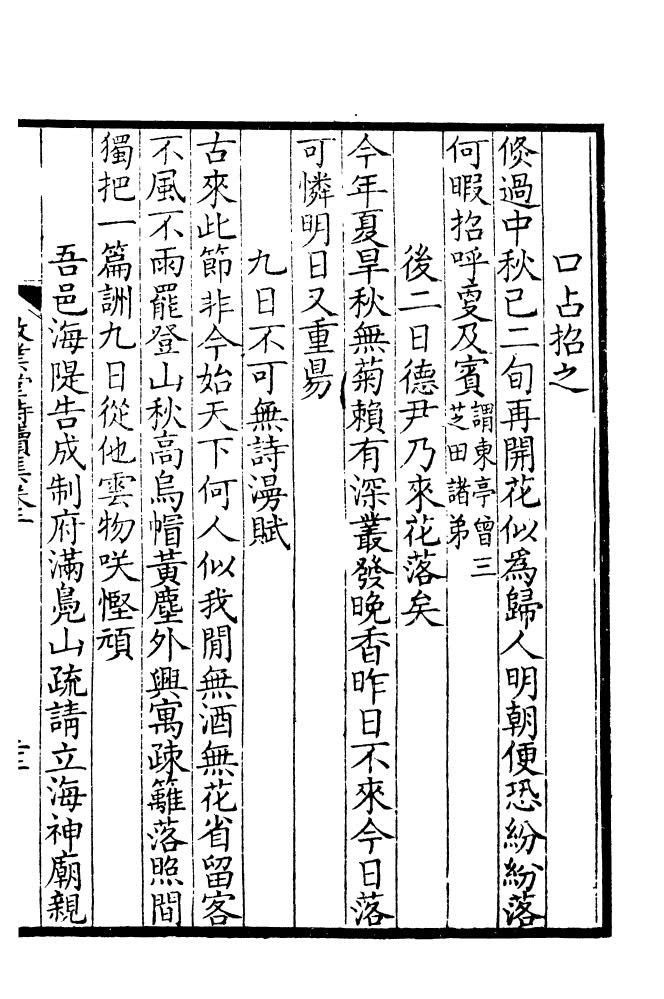 口占招之
倐過中秋已二旬再開花似爲歸人明朝便恐紛紛落
何暇招呼更及賓謂東亭曾三芝田諸弟
後二日德尹乃來花落矣
今年夏旱秋無菊賴有深叢發晚香昨日不來今日落
可憐明日又重昜
九日不可無詩漫賦
古來此節非今始天下何人似我閒無酒無花省留客
不風不雨罷登山秋高烏帽黃塵外興寓疎籬落照間
獨把一篇詶九日從他雲物咲慳頑
吾邑海隄告成制府滿鳧山疏請立海神廟親